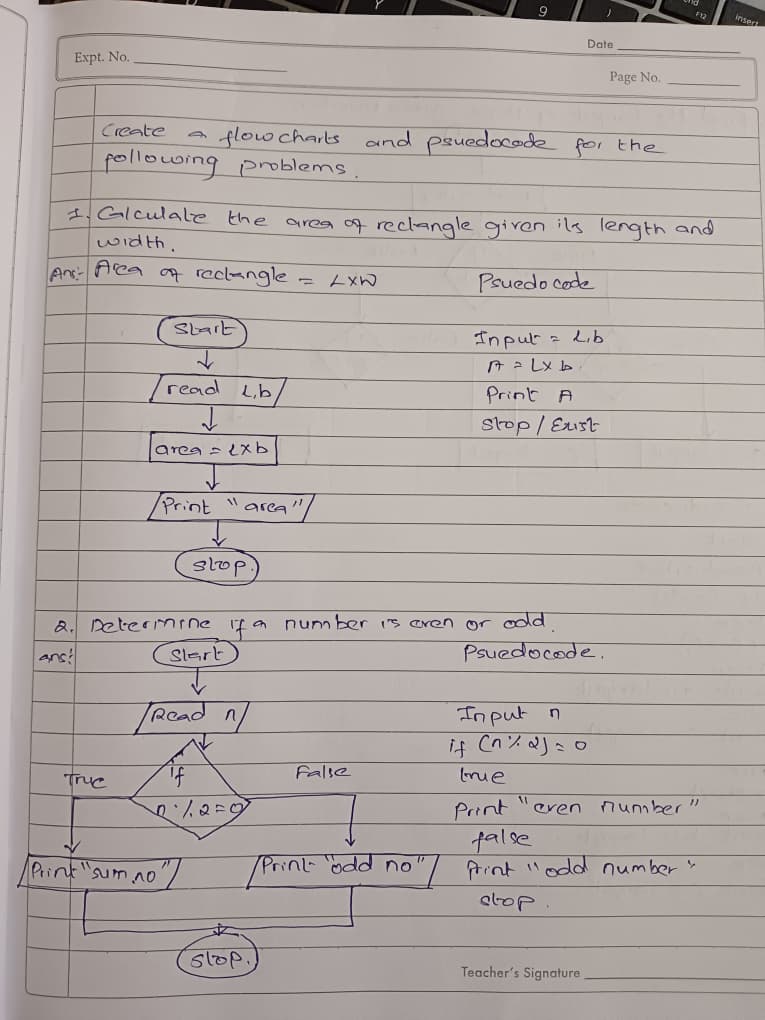 9
)
F12
insert
Date
Expt. No.
Page No.
Create a flowcharts and psuedocode for the
following problems.
1. Calculate the area of rectangle given its length and
width.
Ans:- Area of rectangle = L×W
Psuedocode
Start
read L,b
area = L×b
Print "area"
stop.
Input = L,b
A = L×b.
Print A
Stop / Exist
2. Determine if a number is even or odd.
ans:
Start
Read n
if
n % 2 = 0
True
False
Print "sum no"
Print "odd no"
stop.
Psuedocode.
Input n
if (n % 2) = 0
true
Print "even number"
false
Print "odd number"
stop.
Teacher's Signature